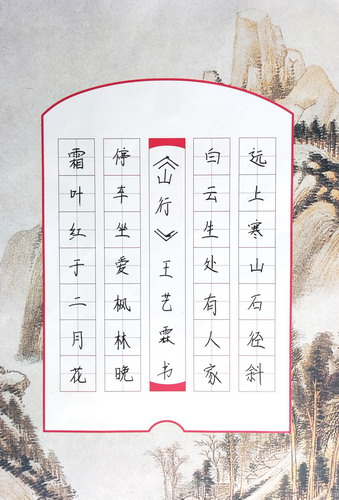 远上寒山石径斜
白云生处有人家
《山行》王艺霖书
停车坐爱枫林晚
霜叶红于二月花